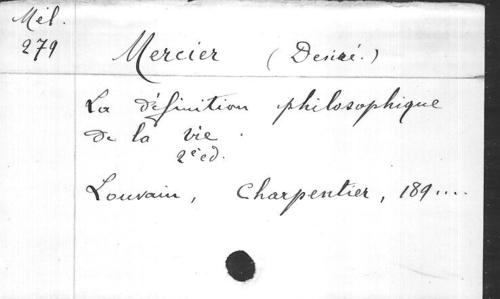 Mél.
279
Mercier (Desiré.)
La définition philosophique
de la vie.
2e éd.
Louvain, Charpentier, 189....